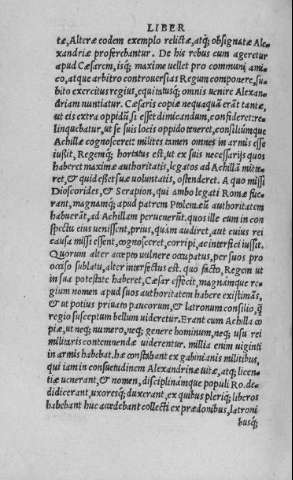 LIBER
tæ, Alteræ eodem exemplo relictæ, atq; obsignatæ Ale-
xandriæ proferebantur. De his rebus cum ageretur
apud Cæsarem, isq; maxime uellet pro communi ami-
co, atque arbitro controuersias Regum componere, su-
bito exercitus regius, equitatusq; omnis uenire Alexan-
driam nuntiatur. Cæsaris copiæ nequaquã erãt tantæ,
ut eis extra oppidũ si esset dimicandum, confideret: re-
linquebatur, ut se suis locis oppido teneret, consiliũmque
Achillæ cognosceret milites tamen omnes in armis esse
iussit, Regemq; hortatus est, ut ex suis necessarijs quos
haberet maximæ authoritatis, legatos ad Achillã mitte-
ret, & quid esset suæ uoluntatis, ostenderet. A quo missi
Dioscorides, & Serapion, qui ambo legati Romæ fue-
rant, magnamq; apud patrem Ptolemæũ authoritatem
habuerãt, ad Achillam peruenerũt. quos ille cum in con-
spectũ eius uenissent, prius, quàm audiret, aut cuius rei
causa missi essent, cognosceret, corripi, ac interfici iussit.
Quorum alter accepto uulnere occupatus, per suos pro
occiso sublatus, alter interfectus est. quo facto, Regem ut
in sua potestate haberet, Cæsar effecit, magnamque re-
gium nomen apud suos authoritatem habere existimãs,
& ut potius priuato paucorum, & latronum consilio, q̃
regio susceptum bellum uideretur. Erant cum Achilla co
piæ, ut neq; numero, neq; genere hominum, neq; usu rei
militaris contemnendæ uiderentur. millia enim uiginti
in armis habebat. hæ constabant ex gabinianis militibus,
qui iam in consuetudinem Alexandrinæ uitæ, atq; licen-
tiæ uenerant, & nomen, disciplinãmque populi Ro. de-
didicerant, uxoresq; duxerant, ex quibus pleriq; liberos
habebant huc accedebant collecti ex prædonibus, latroni
busq;